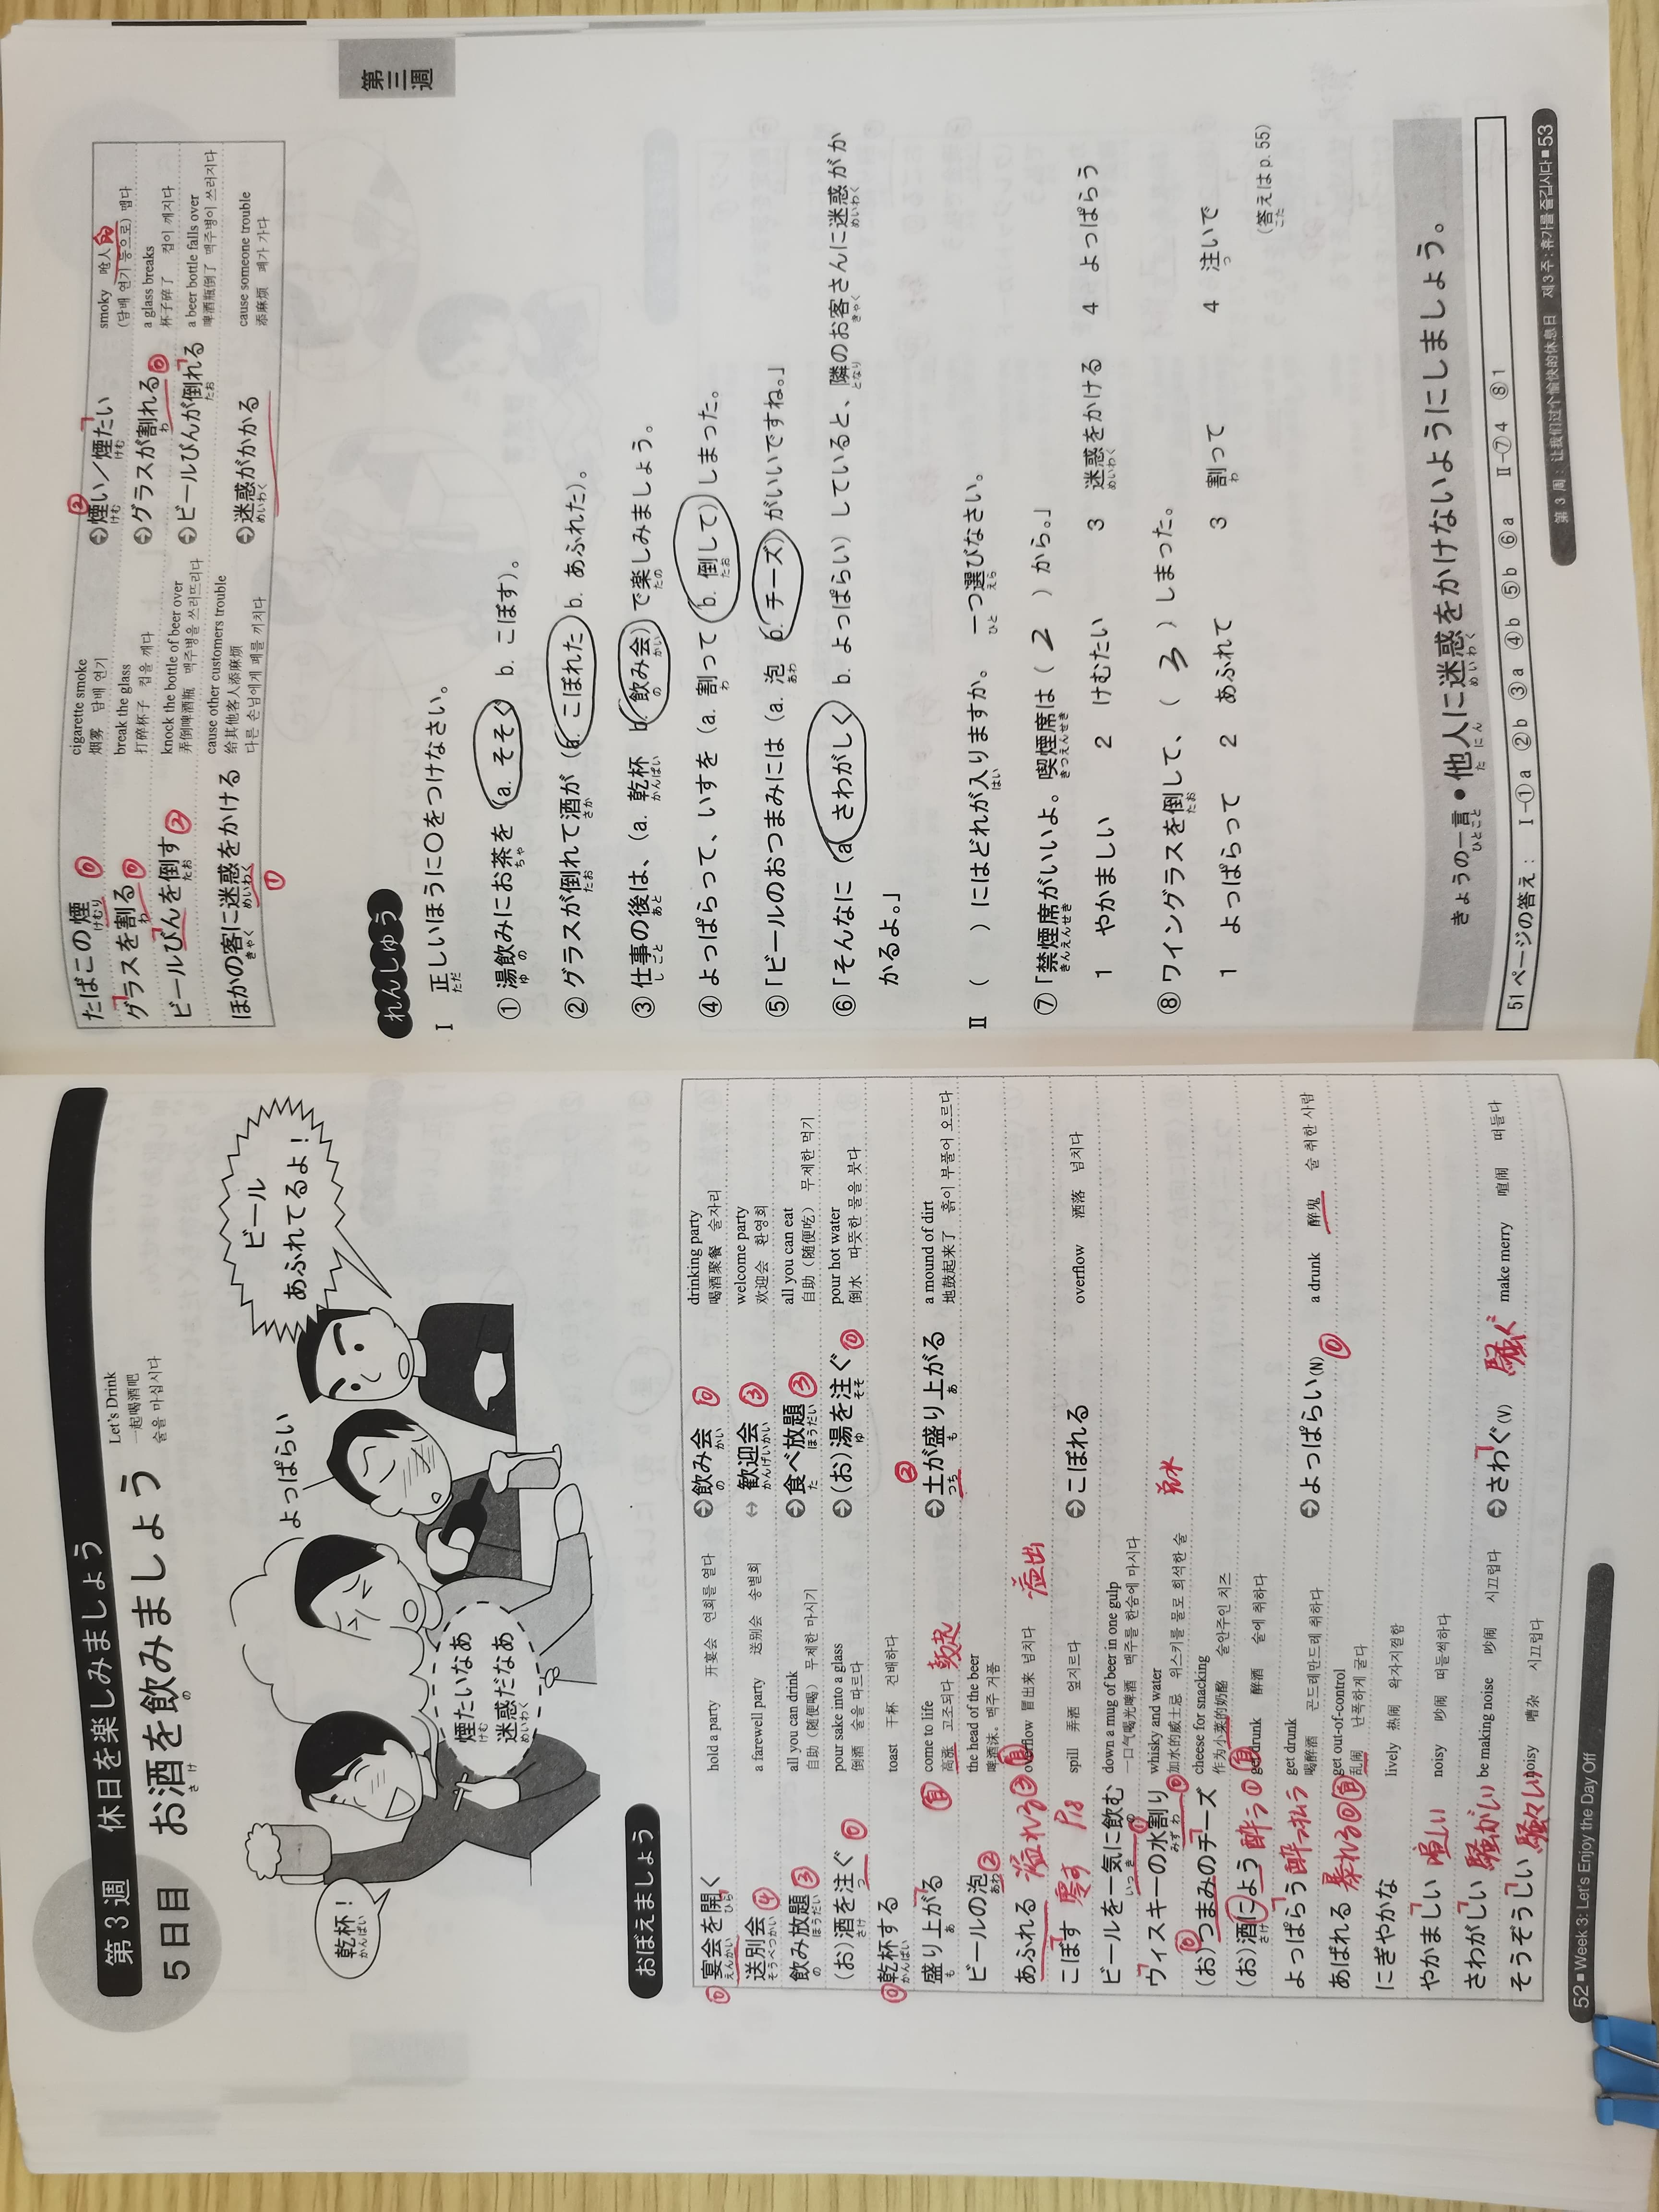 第3週 休日を楽しみましょう
5日目 お酒を飲みましょう
さけ の
Let's Drink
一起喝酒吧
술을 마십시다
乾杯!
かんぱい
煙たいなあ
けむ
迷惑だなあ
めいわく
よっぱらい
ビール
あふれてるよ!
おぼえましょう
⓪ 宴会を開く hold a party 开宴会 연회를 열다 ➔飲み会 ⓪ drinking party
えんかい ひら の かい 喝酒聚餐 술자리
送別会 ④ a farewell party 送别会 송별회 ↔ 歓迎会 ③ welcome party
そうべつかい かんげいかい 欢迎会 환영회
飲み放題 ③ all you can drink ➔食べ放題 ③ all you can eat
の ほうだい 自助(随便喝) 무제한 마시기 た ほうだい 自助(随便吃) 무제한 먹기
(お)酒を注ぐ ⓪ pour sake into a glass ➔(お)湯を注ぐ ⓪ pour hot water
さけ つ 倒酒 술을 따르다 ゆ そそ 倒水 따뜻한 물을 붓다
⓪ 乾杯する toast 干杯 건배하다
かんぱい
盛り上がる 自 come to life ➔土が盛り上がる ② a mound of dirt
も あ 高涨 고조되다 鼓起 つち も あ 地鼓起来了 흙이 부풀어 오르다
ビールの泡 ② the head of the beer
あわ 啤酒沫。 맥주 거품
あふれる 溢れる ③ 自 overflow 冒出来 넘치다 溢出
こぼす 零す spill 弄洒 엎지르다 ➔こぼれる overflow 洒落 넘치다
ビールを一気に飲む down a mug of beer in one gulp
いっき の 一口气喝光啤酒 맥주를 한숨에 마시다
ウィスキーの水割り whisky and water
みずわ ⓪ 加水的威士忌 위스키를 물로 희석한 술
(お)つまみのチーズ cheese for snacking
⓪ 作为小菜的奶酪 술안주인 치즈
(お)酒に よう 酔う ① 自 get drunk 醉酒 술에 취하다
さけ
よっぱらう 酔っ払う get drunk ➔よっぱらい(N) ⓪ a drunk 醉鬼 술 취한 사람
喝醉酒 곤드레만드레 취하다
あばれる 暴れる ⓪ 自 get out-of-control
乱闹 난폭하게 굴다
にぎやかな lively 热闹 왁자지껄함
やかましい 喧しい noisy 吵闹 떠들썩하다
さわがしい 騒がしい be making noise 吵闹 시끄럽다 ➔さわぐ(V) 騒ぐ make merry 喧闹 떠들다
そうぞうしい 騒々しい noisy 嘈杂 시끄럽다
52 ■ Week 3: Let's Enjoy the Day Off
たばこの煙 ⓪ cigarette smoke ➔煙い/煙たい ② smoky 呛人的
けむり 烟雾 담배 연기 けむ けむ (담배 연기 등으로) 맵다
グラスを割る ⓪ break the glass ➔グラスが割れる ⓪ a glass breaks
わ 打碎杯子 컵을 깨다 わ 杯子碎了 컵이 깨지다
ビールびんを倒す ② knock the bottle of beer over ➔ビールびんが倒れる a beer bottle falls over
たお 弄倒啤酒瓶 맥주병을 쓰러뜨리다 たお 啤酒瓶倒了 맥주병이 쓰러지다
ほかの客に迷惑をかける cause other customers trouble ➔迷惑がかかる cause someone trouble
きゃく めいわく ① 给其他客人添麻烦 めいわく 添麻烦 폐가 가다
다른 손님에게 폐를 끼치다
れんしゅう
I 正しいほうに○をつけなさい。
ただ
① 湯飲みにお茶を (a. そそぐ b. こぼす)。
ゆ の ちゃ
② グラスが倒れて酒が (a. こぼれた b. あふれた)。
たお さか
③ 仕事の後は、(a. 乾杯 b. 飲み会) で楽しみましょう。
しごと あと かんぱい の かい たの
④ よっぱらって、いすを (a. 割って b. 倒して) しまった。
わ たお
⑤「ビールのおつまみには (a. 泡 b. チーズ) がいいですね。」
あわ
⑥「そんなに (a. さわがしく b. よっぱらい) していると、隣のお客さんに迷惑がか
となり きゃく めいわく
かるよ。」
II ( ) にはどれが入りますか。 一つ選びなさい。
はい ひと えら
⑦「禁煙席がいいよ。喫煙席は ( 2 ) から。」
きんえんせき きつえんせき
1 やかましい 2 けむたい 3 迷惑をかける 4 よっぱらう
めいわく
⑧ ワイングラスを倒して、( 3 ) しまった。
たお
1 よっぱらって 2 あふれて 3 割って 4 注いで
わ つ
(答えは p. 55)
こた
きょうの一言 ● 他人に迷惑をかけないようにしましょう。
ひとこと たにん めいわく
51ページの答え: I-①a ②b ③a ④b ⑤b ⑥a II-⑦4 ⑧1
第 3 周: 让我们过个愉快的休息日 제3주: 휴가를 즐깁시다 ■ 53
第三週